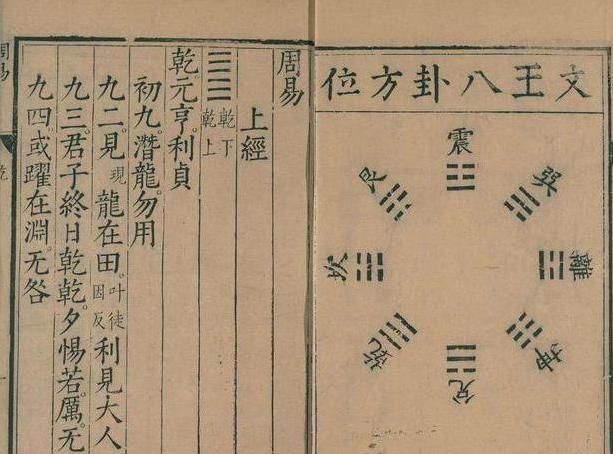 文王八卦方位
震
巽
離
坤
兌
乾
坎
艮
周易
上經
乾下
乾上
乾元亨。利貞
初九。潛龍。勿用
九二。見現龍在田。叶徒因反利見大人
九三。君子終日乾乾。夕惕若。厲。无
九四。或躍在淵。无咎
周易
乾